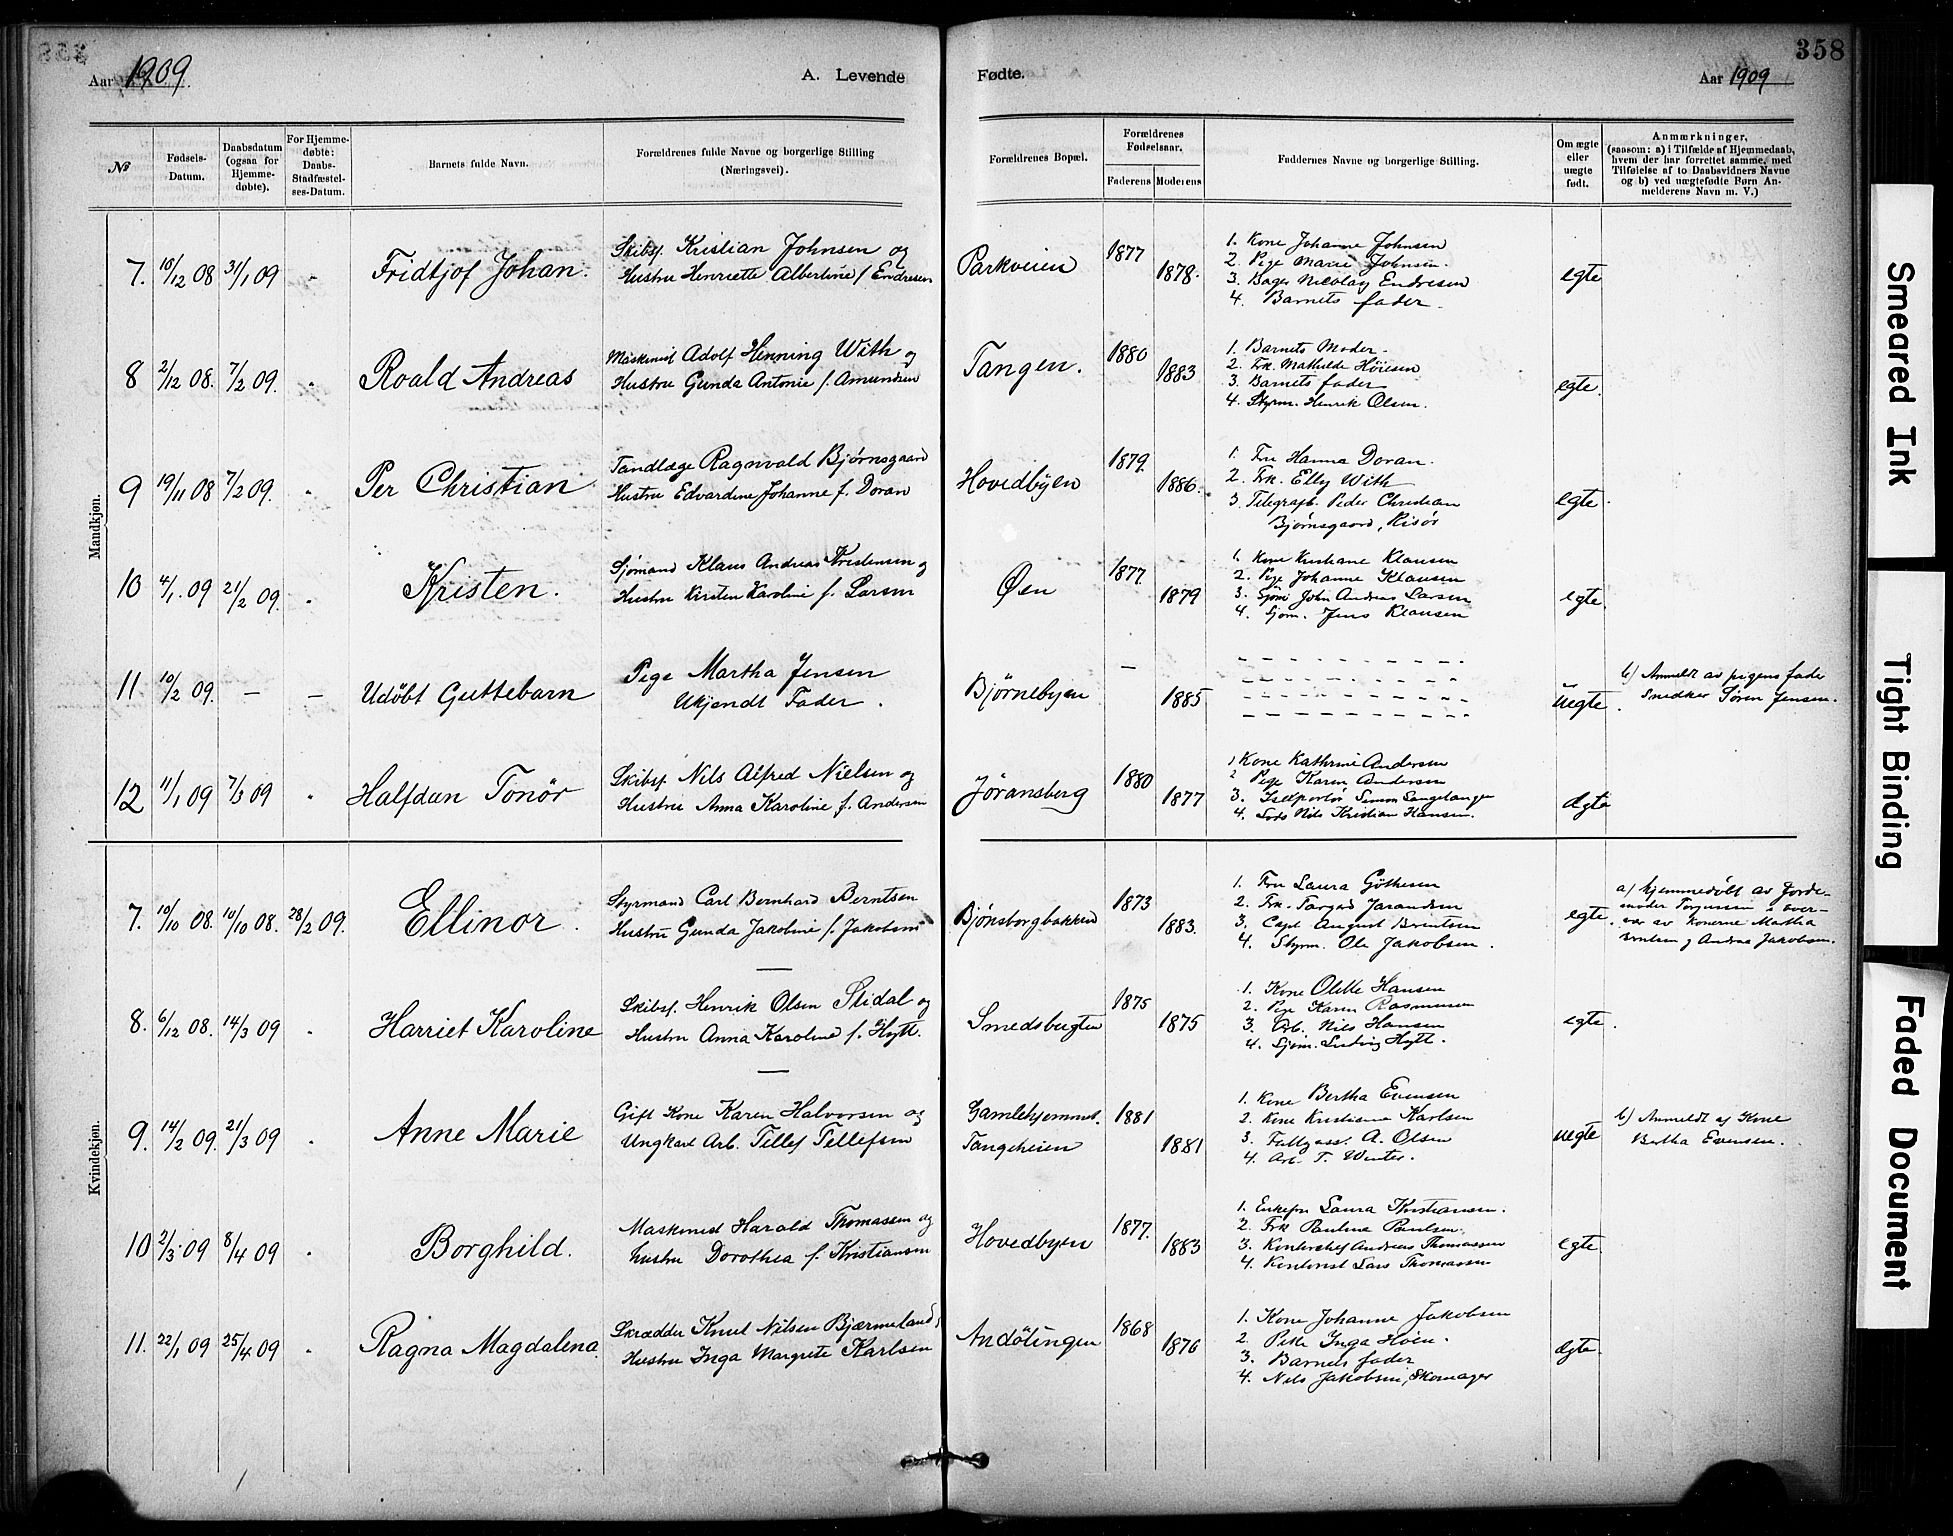 358
Aar 1909.
A. Levende
Fødte.
Aar 1909
№
Fødsels-Datum.
Daabsdatum (ogsaa for Hjemme-døbte).
For Hjemme-døbte: Daabs-Stadfæstel-ses-Datum.
Barnets fulde Navn.
Forældrenes fulde Navne og borgerlige Stilling (Næringsvei).
Forældrenes Bopæl.
Forældrenes Fødselsaar.
Faderens
Moderens
Faddernes Navne og borgerlige Stilling.
Om ægte eller uægte født.
Anmærkninger,
(saasom: a) i Tilfælde af Hjemmedaab, hvem der har forrettet samme, med Tilføielse af to Daabsvidners Navne og b) ved uægtefødte Børn An-melderens Navn m. V.)
Mandkjøn.
7. 18/12 08 31/1 09 Fridtjof Johan.
Skibsf. Kristian Johnsen og
Hustru Henriette Albertine f. Endresen
Parkveien 1877 1878.
1. Kone Johanne Johnsen
2. Pige Marie Johnsen.
3. Bager Nicolay Endresen
4. Barnets fader.
egte
8 2/12 08. 7/2 09. Roald Andreas
Maskinist Adolf Henning With og
Hustru Gunda Antonie f. Amundsen
Tangen. 1880 1883
1. Barnets Moder.
2. Frk. Mathilde Høiesen
3. Barnets fader
4. Styrm. Henrik Olsen.
egte.
9 19/11 08 7/2 09. Per Christian
Tandlæge Ragnvald Bjørnsgaard
Hustru Edvardine Johanne f. Doran
Hovedbyen 1879. 1886.
1. Fru Hanna Doran.
2. Frk. Elly With
3. Telegrafb. Peder Christian
Bjørnsgaard, Risør
egte
10 4/1. 09 21/2 09. Kristen.
Sjømand Klaus Andreas Kristensen og
Hustru Kirsten Karoline f. Larsen
Øen 1877. 1879
1. Kone Kristiane Klausen
2. Pige Johanne Klausen
3. Sjøm John Andreas Larsen
4. Sjøm. Jens Klausen
egte.
11 10/2 09. – – Udöbt Guttebarn
Pige Martha Jensen
Ukjendt Fader.
Bjørnebyen – 1885
uegte.
b) Anmeldt av pigens fader
Snedker Søren Jensen.
12 11/1 09 7/3 09 Halfdan Tonör
Skibsf. Nils Alfred Nielsen og
Hustru Anna Karoline f. Andersen
Jøransberg 1880 1877
1 Kone Kathrine Andersen
2 Pige Karen Andersen
3. Simon Langetangen
4. Lods Nils Kristian Hansen.
ægte
Kvindekjøn.
7. 10/10 08. 10/10 08. 28/2 09. Ellinor.
Styrmand Carl Bernhard Berntsen
Hustru Gunda Jakobine f. Jakobsen
Bjönsborgbakken 1873 1883.
1. Fru Laura Göthesen
2. Frk. Torgerd Jarandsen
3. Capt August Berntsen
4. Styrm. Ole Jakobsen.
egte.
a) hjemmedöbt av Jorde-
moder Torgersen i over-
vær av konerne Martha
Berntsen g Andrea Jakobsen.
8. 6/12 08. 14/3 09 Harriet Karoline
Skibsf. Henrik Olsen Stidal og
Hustru Anna Karoline f. Hytt.
Smedsbugten 1875 1875
1. Kone Olette Hansen
2. Pige Karen Rasmussen
3. Arb. Nils Hansen
4. Sjöm. Ludvig Hytt.
egte.
9. 14/2 09. 21/3 09 Anne Marie
Gift Kone Karen Halvorsen og
Ungkarl Arb. Tellef Tellefsen
Gamlehjemmet.
Tangeheien
1881 1881
1. Kone Bertha Evensen
2. Kone Kristiane Karlsen
3. A. Olsen
4. Arb. T. Winter.
uegte
b) Anmeldt af Kone
Bertha Evensen.
10 2/3 09 8/4 09 Borghild.
Maskinist Harald Thomassen og
hustru Dorothea f. Kristiansen
Hovedbyen 1877. 1883
1. Enkefru Laura Kristiansen.
2. Frk Pauline Paulsen.
3. Kontorchef Andreas Thomassen
4. Kontorist Lars Thomassen
egte.
11. 22/1 09 25/4 09 Ragna Magdalena.
Skrædder Knut Nilsen Bjærmeland,
Hustru Inga Margrete Karlsen
Andötingen 1868 1876
1. Kone Johanne Jakobsen
2. Pike Inga Hven.
3. Barnets fader
4. Nils Jakobsen, Skomager
ægte.
Smeared Ink
Tight Binding
Faded Document